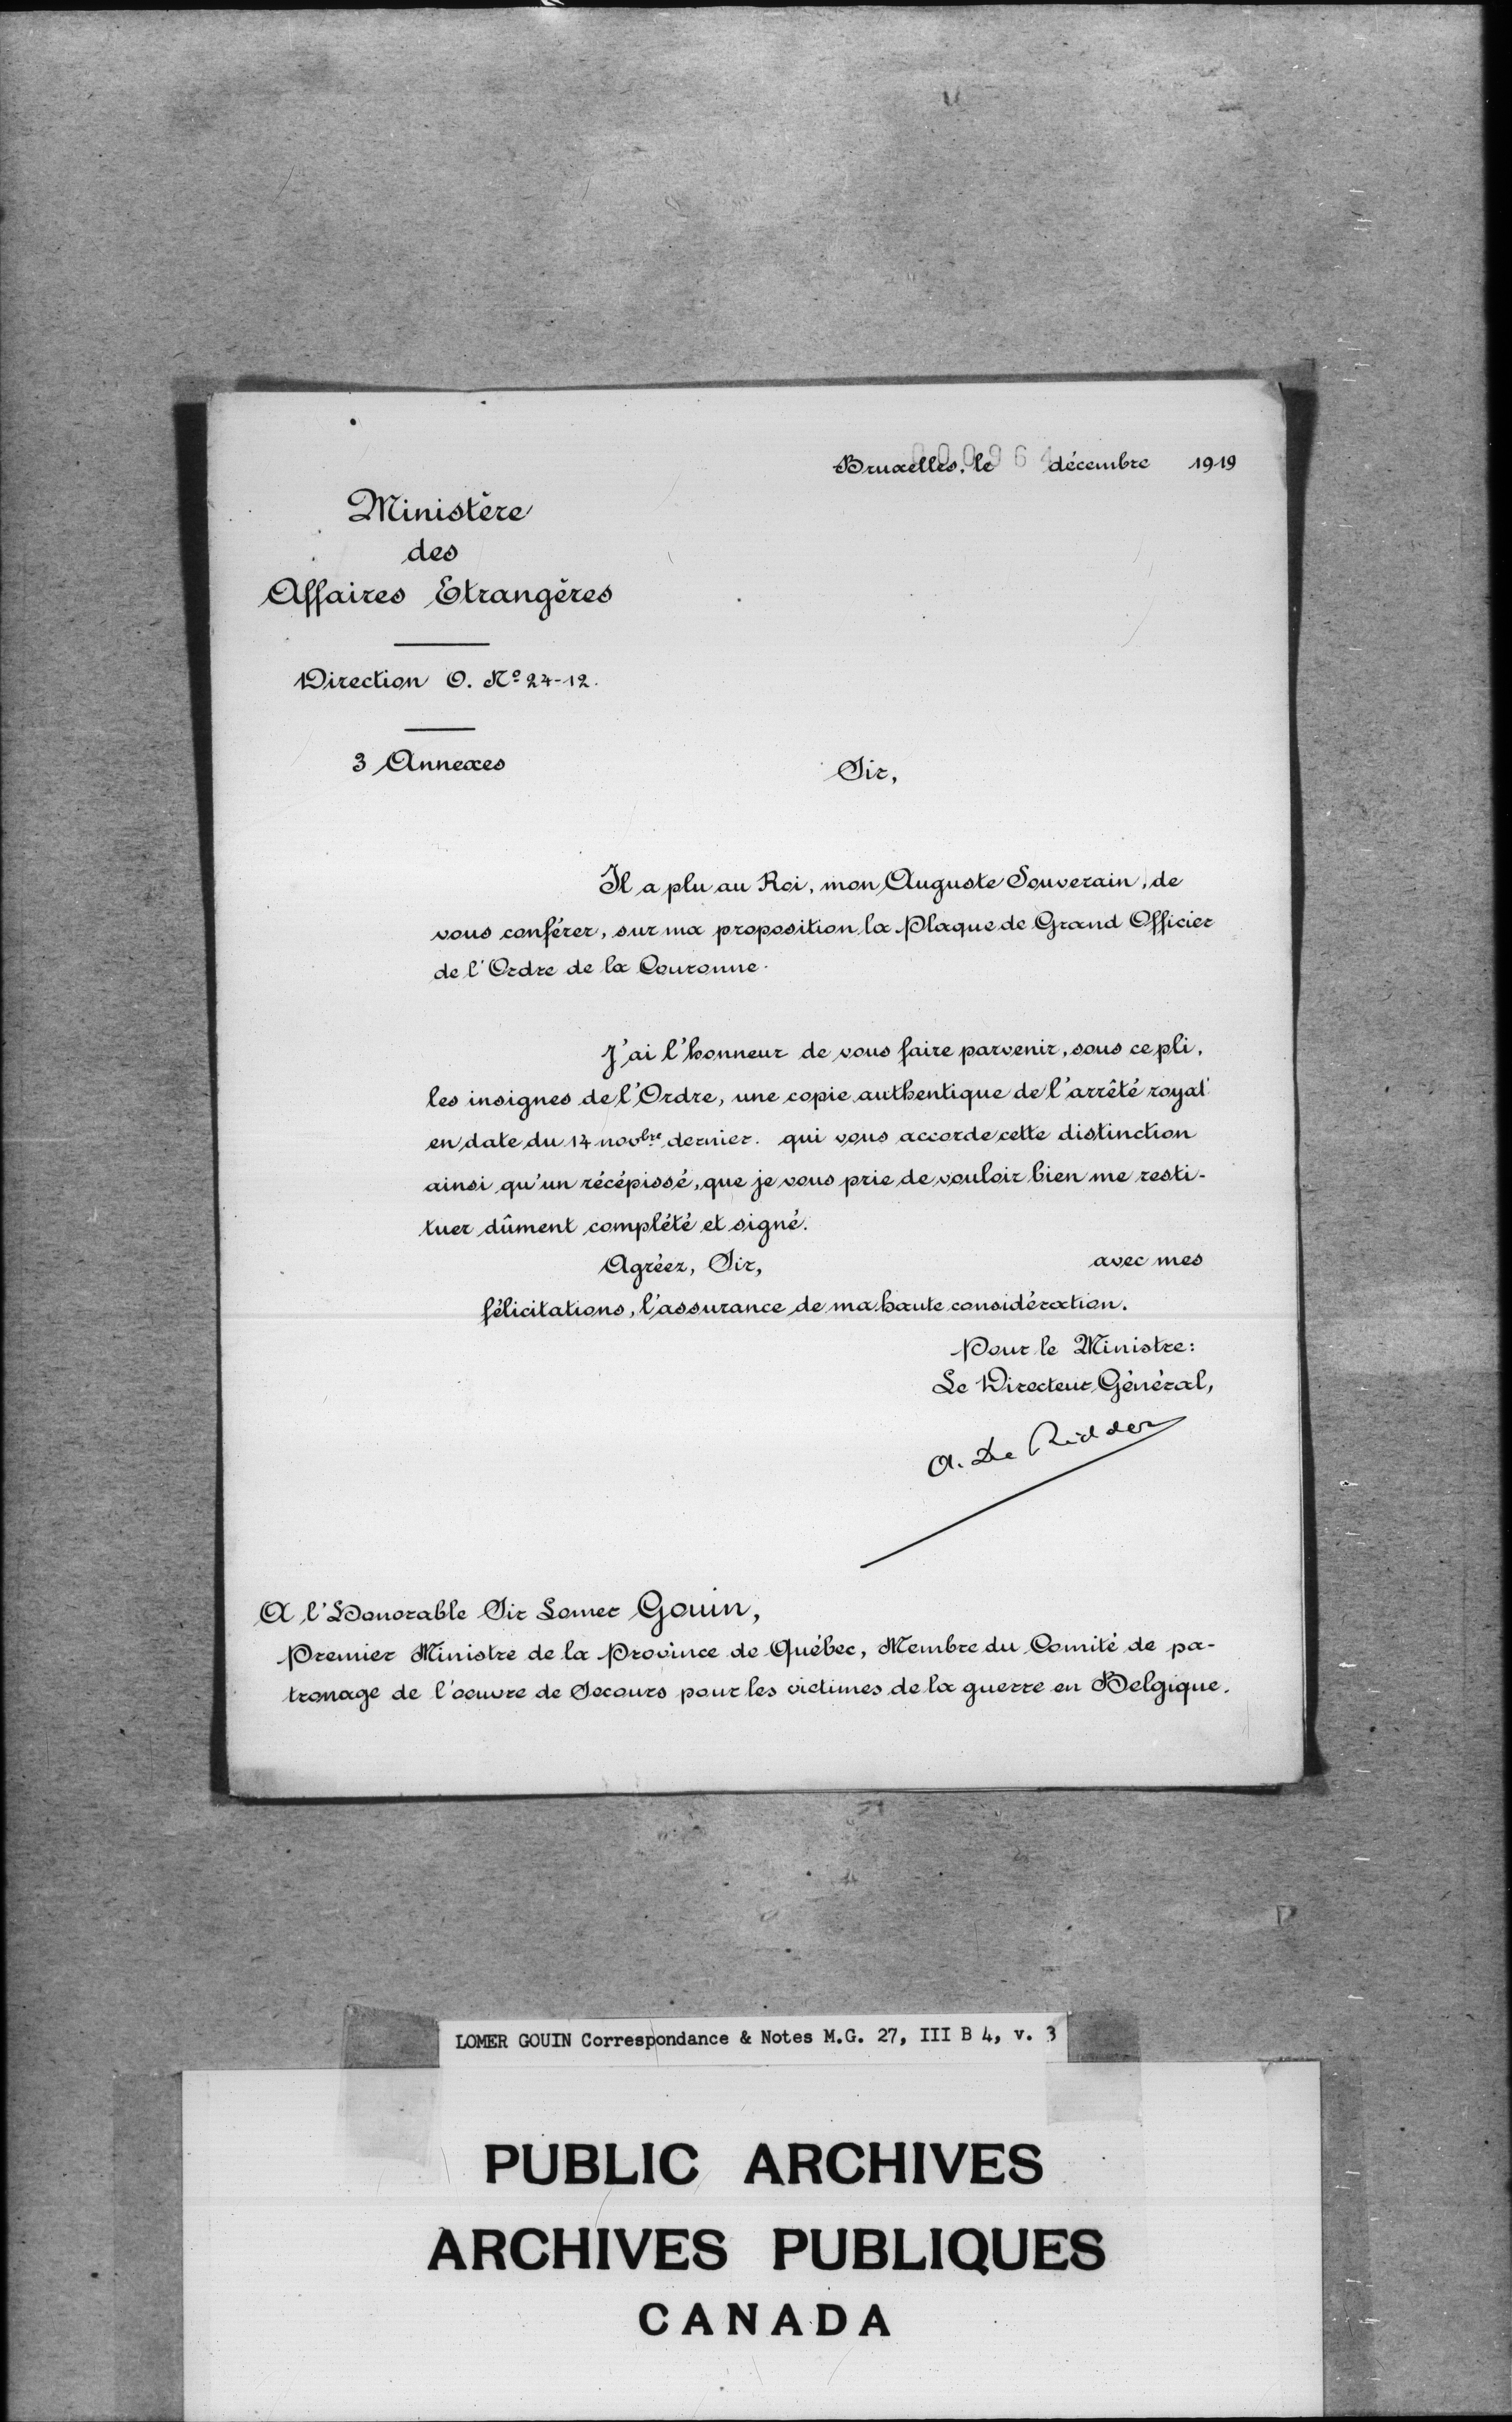 Bruxelles, le décembre 1919
Ministère
des
Affaires Etrangères
Direction O. Nº 24-12.
3 Annexes
Sir,
Il a plu au Roi, mon Auguste Souverain, de
vous conférer, sur ma proposition la Plaque de Grand Officier
de l'Ordre de la Couronne.
J'ai l'honneur de vous faire parvenir, sous ce pli,
les insignes de l'Ordre, une copie authentique de l'arrêté royal
en date du 14 novbre dernier. qui vous accorde cette distinction
ainsi qu'un récépissé, que je vous prie de vouloir bien me resti-
tuer dûment complété et signé.
Agréez, Sir, avec mes
félicitations, l'assurance de ma haute considération.
Pour le Ministre:
Le Directeur Général,
A. De Ridder
A l'Honorable Sir Lomer Gouin,
Premier Ministre de la Province de Québec, Membre du Comité de pa-
tronage de l'oeuvre de Secours pour les victimes de la guerre en Belgique.
LOMER GOUIN Correspondance & Notes M.G. 27, III B 4, v. 3
PUBLIC ARCHIVES
ARCHIVES PUBLIQUES
CANADA